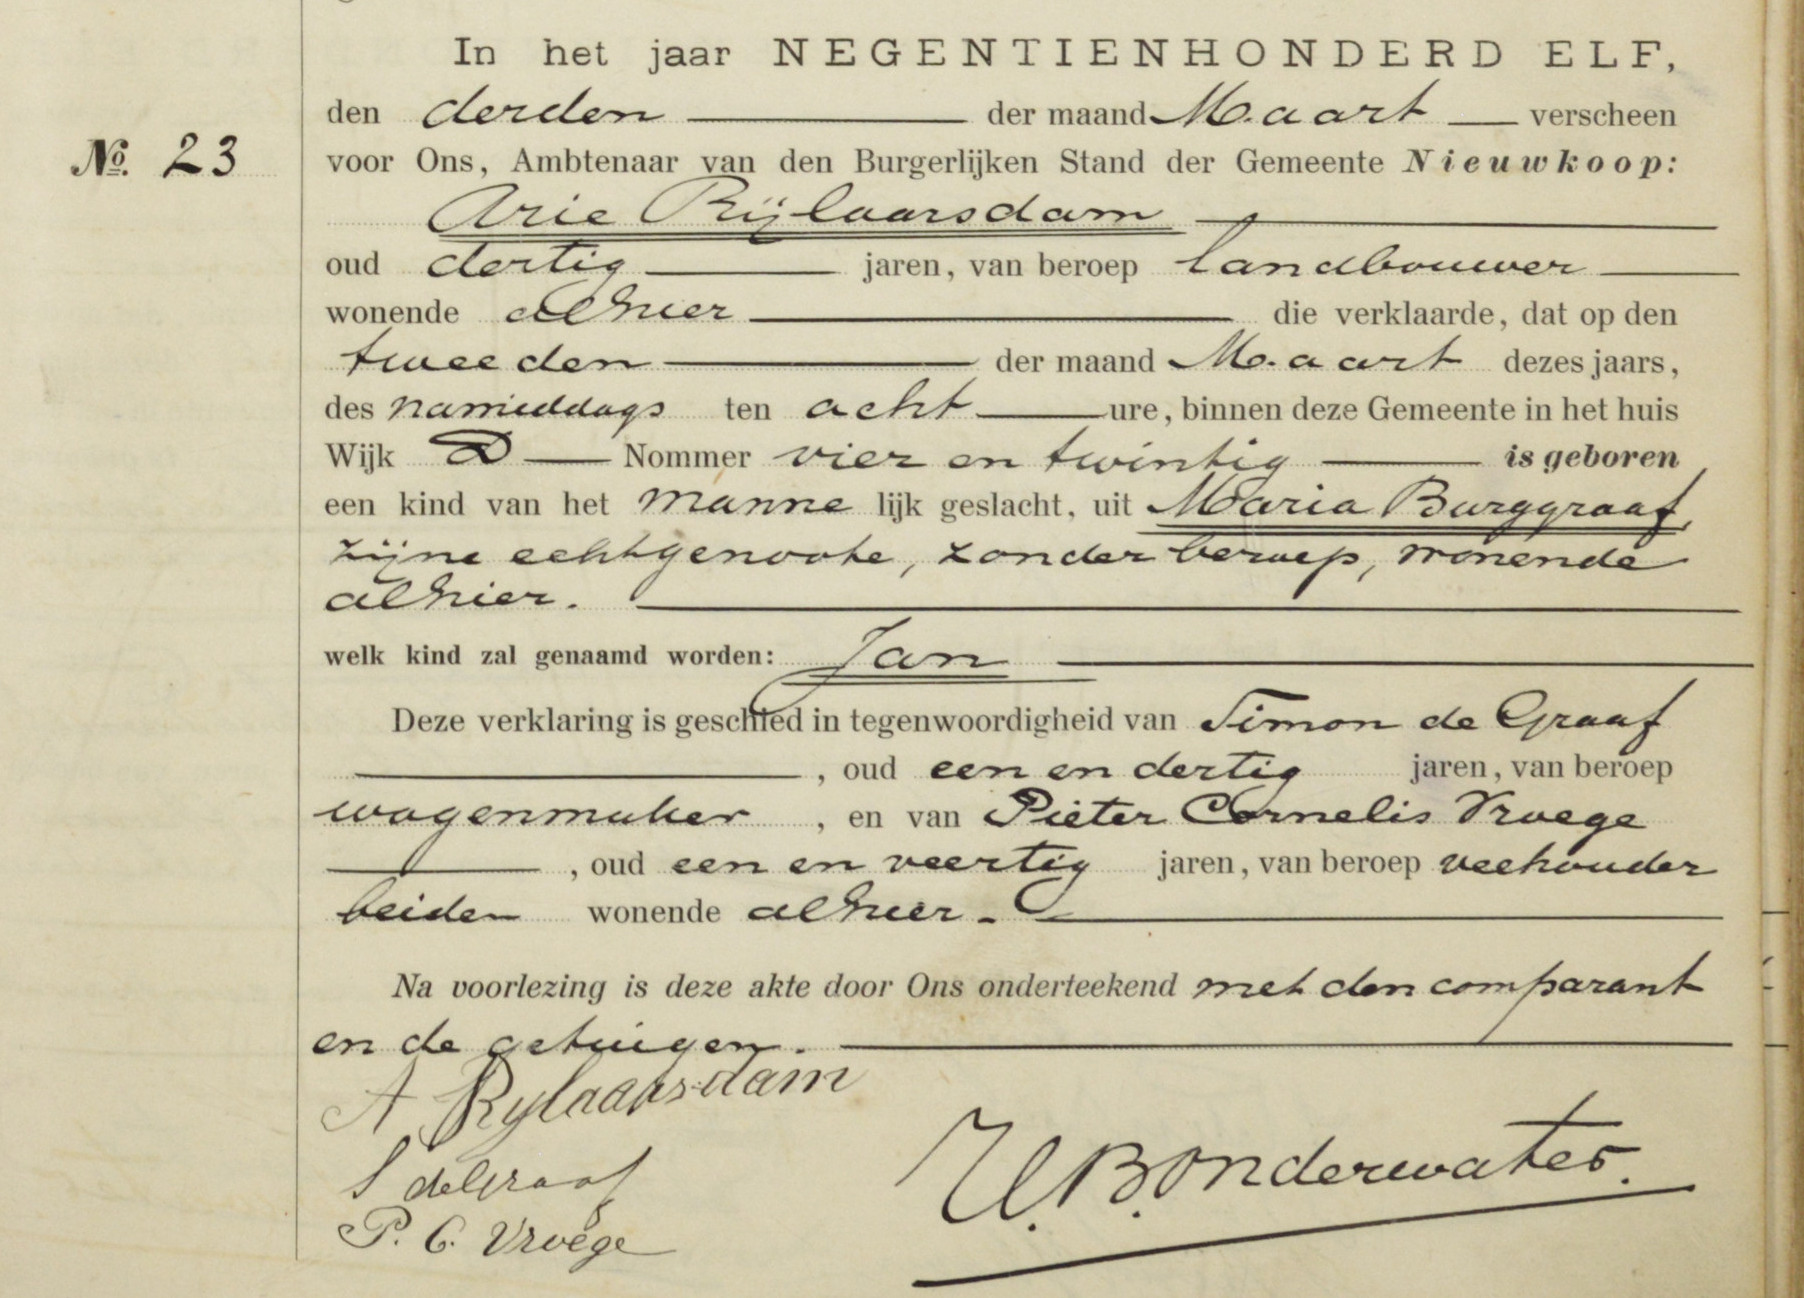 In het jaar NEGENTIENHONDERD ELF,
den derden der maand Maart verscheen
No. 23
voor Ons, Ambtenaar van den Burgerlijken Stand der Gemeente Nieuwkoop:
Arie Rijlaarsdam
oud dertig jaren, van beroep landbouwer
wonende alhier die verklaarde, dat op den
tweeden der maand Maart dezes jaars,
des namiddags ten acht ure, binnen deze Gemeente in het huis
Wijk D Nommer vier en twintig is geboren
een kind van het manne lijk geslacht, uit Maria Burggraaf,
zijne echtgenoote, zonder beroep, wonende
alhier.
welk kind zal genaamd worden: Jan
Deze verklaring is geschied in tegenwoordigheid van Simon de Graaf
, oud een en dertig jaren, van beroep
wagenmaker, en van Pieter Cornelis Vroege
, oud een en veertig jaren, van beroep veehouder
beiden wonende alhier.
Na voorlezing is deze akte door Ons onderteekend met den comparant
en de getuigen.
A Rylaarsdam
S de Graaf
P. C. Vroege
B. Bonderwater.